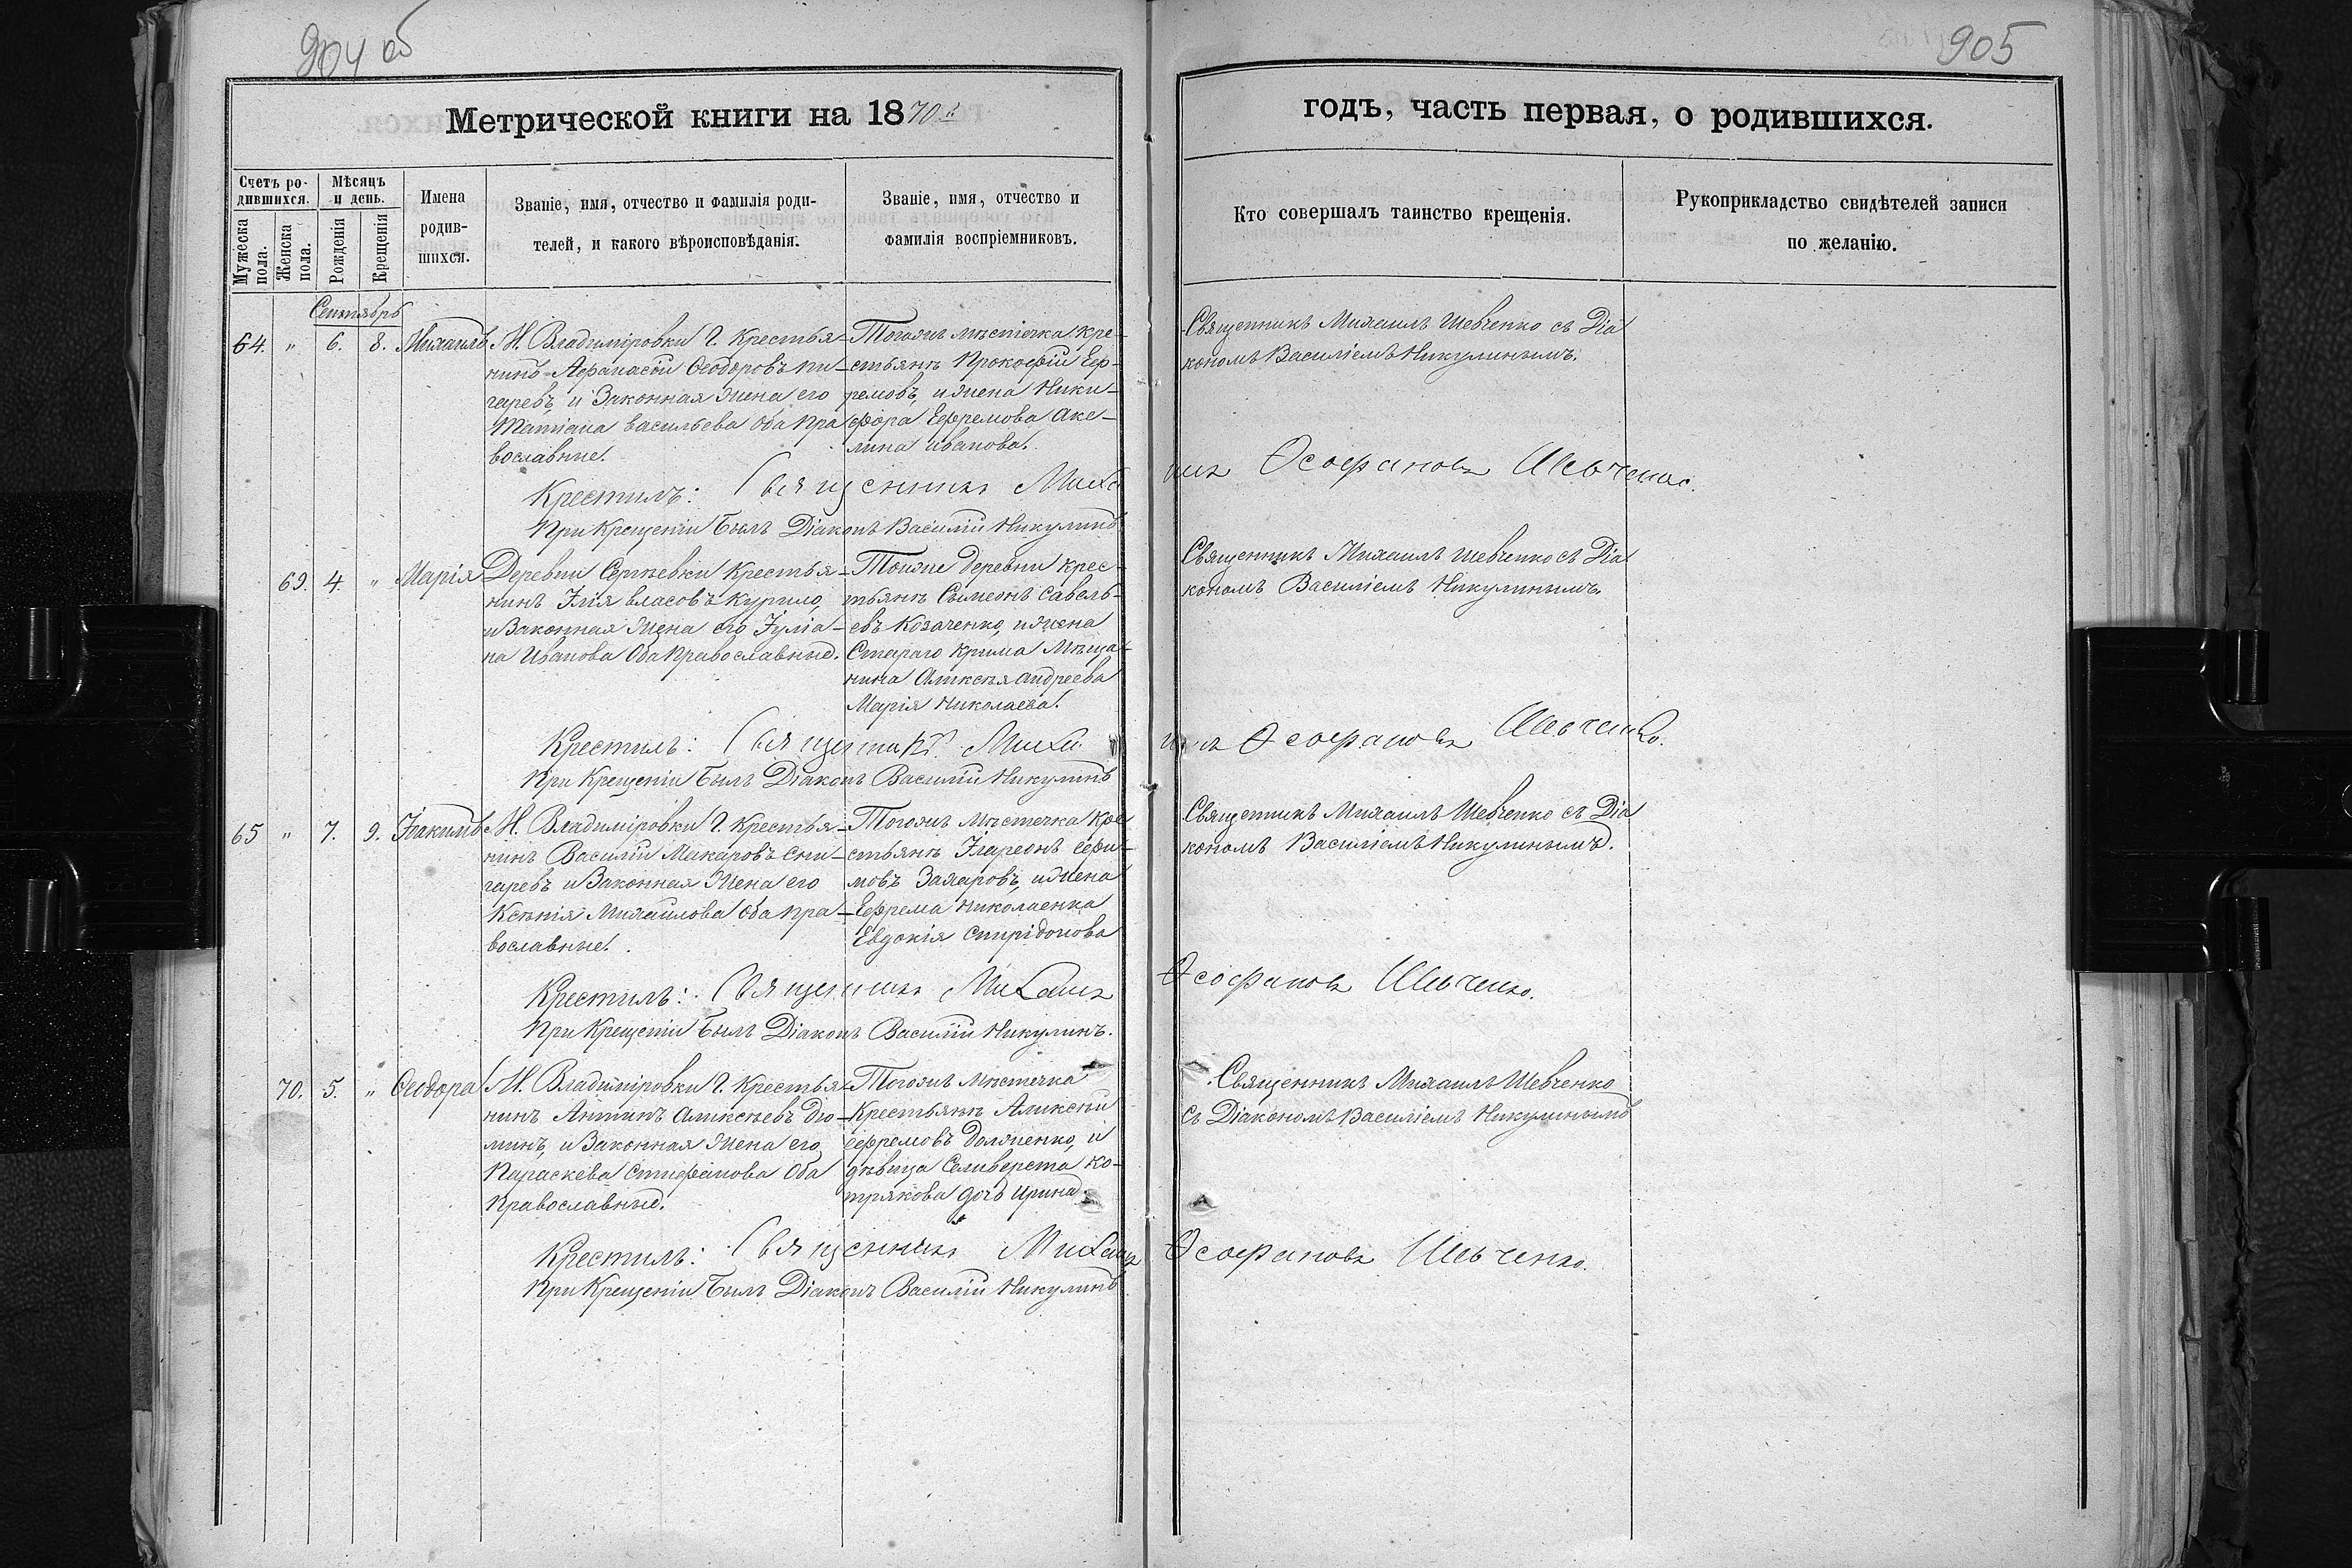 904 об
905
Метрической книги на 1870й
годъ, часть первая, о родившихся.
Счетъ родившихся.
Мѣсяцъ и день.
Мужеска пола.
Женска пола.
Рожденія
Крещенія
Имена родившихся.
Званіе, имя, отчество и фамилія родителей, и какого вѣроисповѣданія.
Званіе, имя, отчество и фамилія воспріемниковъ.
Кто совершалъ таинство крещенія.
Рукоприкладство свидѣтелей записи по желанію.
Сентябрь
64. " 6. 8. Михаилъ
М. Владиміровки Г. Крестья-
нинъ Афанасій Ѳеодоровъ
и Законная Жена его
Татіана Васильева Оба Пра
вославные.
Тогожъ мѣстечка Кре-
стьянъ Прокофій Еф-
ремовъ, и жена Ники-
фора Ефремова Аке-
лина Иванова.
Священникъ Михаилъ Шевченко съ Діа
кономъ Василіемъ Никулинымъ.
Крестилъ: Священникъ Михаилъ Ѳеофановъ Шевченко.
При Крещеніи былъ Діаконъ Василій Никулинъ
69. 4. " Марія
Деревни Сергѣевки Крестья-
нинъ Илія Власовъ Курило,
и Законная Жена его Іуліа-
на Иванова Оба Православные.
Тоцже деревни Крес-
тьянъ Сѵмеонъ Савель-
евъ Козаченко, и жена
Стараго Крима Мѣща-
нина Алексѣя Андреева
Марія Николаева.
Священникъ Михаилъ Шевченко съ Діа
кономъ Василіемъ Никулинымъ.
Крестилъ: Священникъ Михаилъ Ѳеофановъ Шевченко.
При Крещеніи былъ Діаконъ Василій Никулинъ
65 " 7. 9. Іоакимъ
М. Владиміровки Г. Крестья-
нинъ Василій Макаровъ Сни-
гаревъ и Законная Жена его
Ксенія Михайлова Оба Пра-
вославные.
Тогожъ Мѣстечка Кре
стьянъ Ілареонъ Ефи-
мовъ Захаровъ, и жена
Ефрема Николаенка
Евдокія Спиридонова
Священникъ Михаилъ Шевченко съ Діа
кономъ Василіемъ Никулинымъ.
Крестилъ: Священникъ Михаилъ Ѳеофановъ Шевченко.
При Крещеніи былъ Діаконъ Василій Никулинъ.
70. 5. " Ѳеодора
М. Владиміровки Г. Крестья-
нинъ Антипъ Алексѣевъ Дю-
минъ, и Законная Жена его
Параскева Стефанова Оба
Православные.
Тогожъ Мѣстечка
Крестьянъ Алексѣй
Ефремовъ Долженко, и
дѣвица Селиверста Ко-
трякова дочь Ирина.
Священникъ Михаилъ Шевченко
съ Діакономъ Василіемъ Никулинымъ
Крестилъ: Священникъ Михаилъ Ѳеофановъ Шевченко.
При Крещеніи былъ Діаконъ Василій Никулинъ